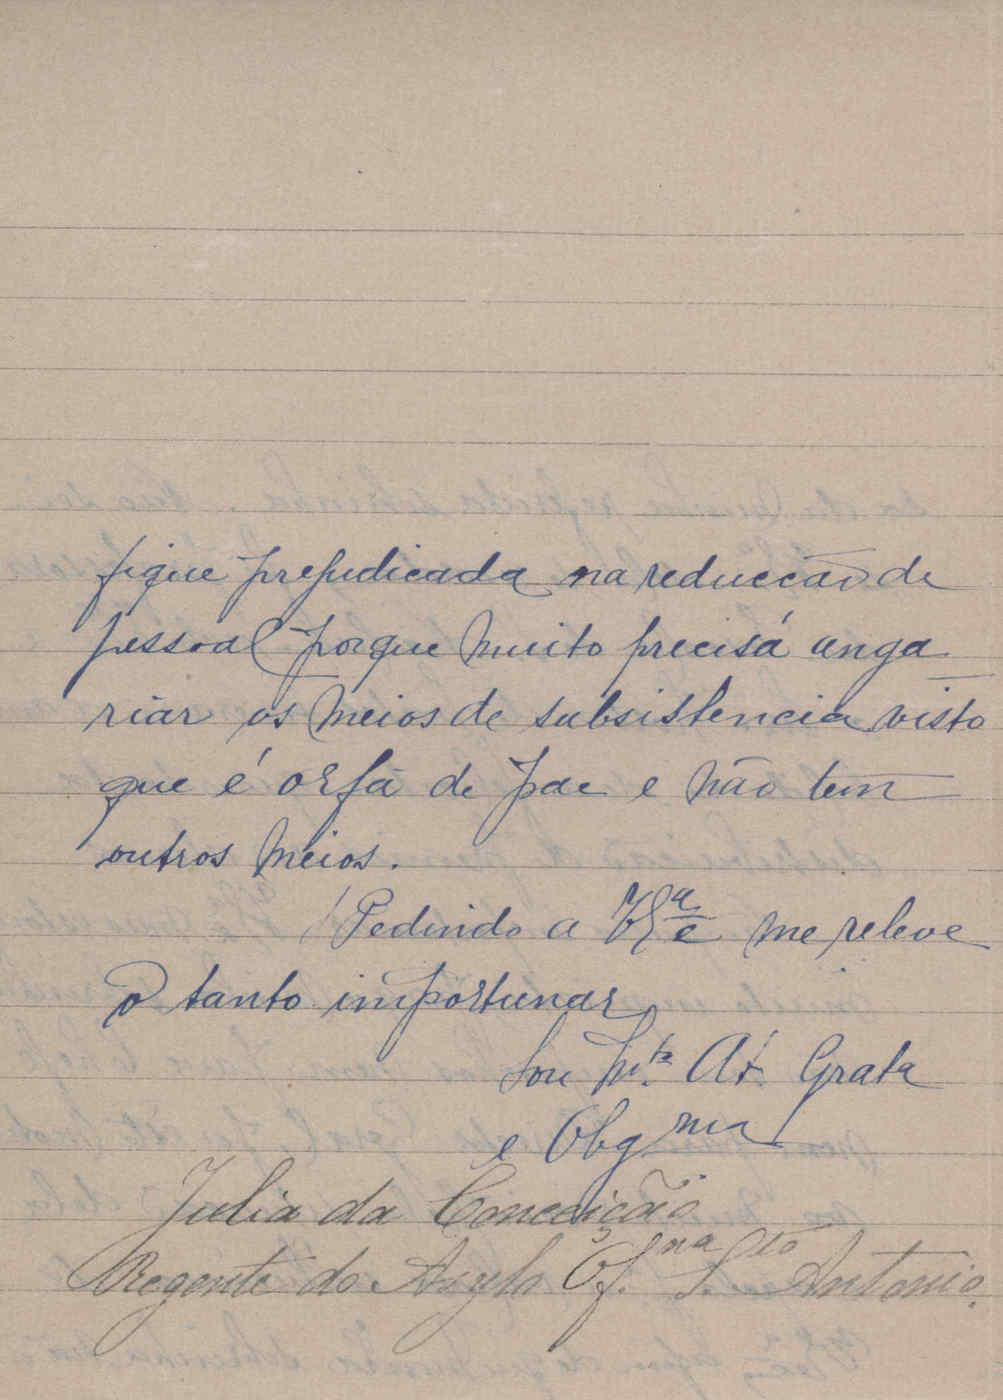 fique prejudicada na reducção de
pessoal porque muito precisa anga
riar os meios de subsistencia visto
que é orfã de pae e não tem
outros meios.
Pedindo a V Eª me releve
o tanto importunar
Sou Mtª At. Grata
e Obgma
Julia da Conceição
Regente do Asylo Of.na S.to Antonio.